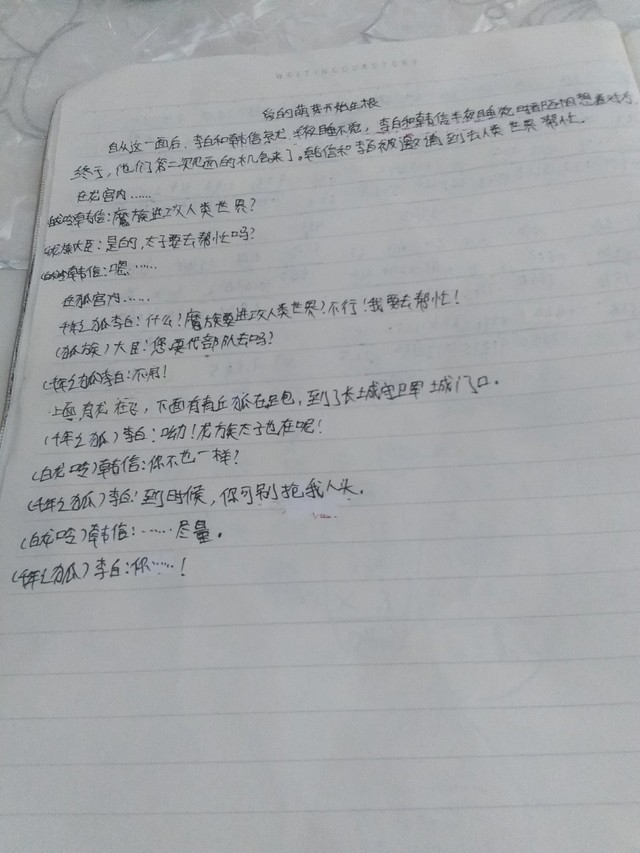 WRITINGOURSTORY
爱的萌芽开始生根
自从这一面后，李白和韩信就 半夜睡不觉，李白和韩信半夜睡觉 想着对方
终于，他们第二次见面的机会来了。韩信和李白被邀请到去人类世界帮忙。
在龙宫内……
(白龙吟)韩信：魔族进攻人类世界？
(龙族)大臣：是的，太子要去帮忙吗？
(白龙吟)韩信：嗯……
在狐宫内……
千年之狐李白：什么！魔族要进攻人类世界？不行！我要去帮忙！
(狐族)大臣：您要代部队去吗？
(千年之狐)李白：不用！
上面有龙在飞，下面有青丘狐在跑，到了长城守卫军 城门口。
(千年之狐)李白：呦！龙族太子也在呢！
(白龙吟)韩信：你不也一样？
(千年之狐)李白：到时候，你可别抢我人头。
(白龙吟)韩信：……尽量。
(千年之狐)李白：你……！